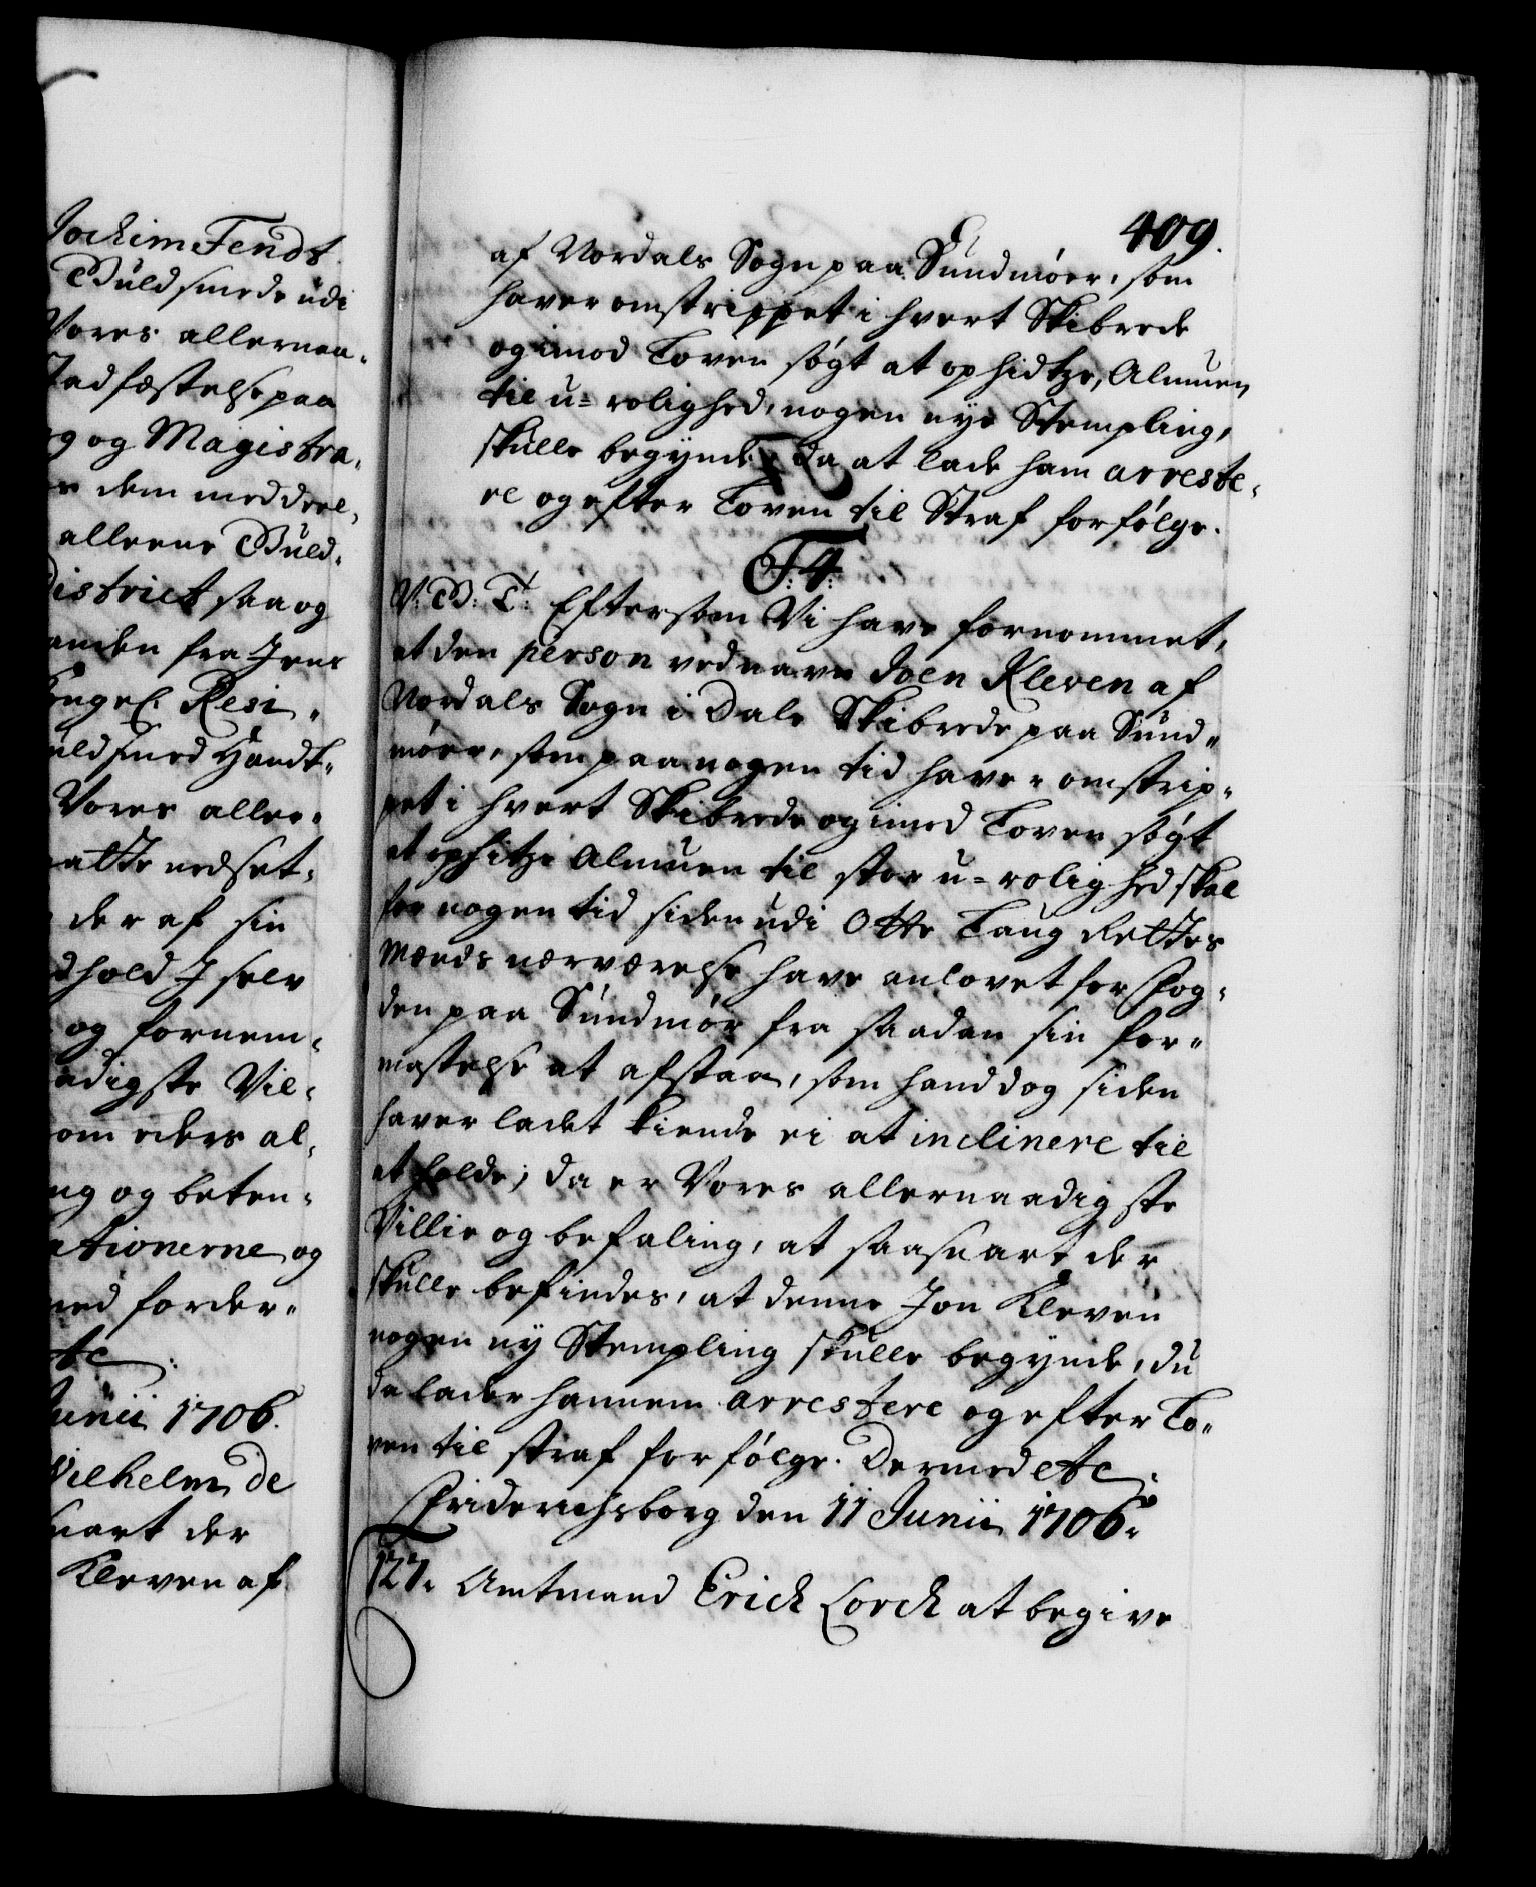 Jochim Fendt
Guldsmede udi
Vores allernaa-
Stadfæstelse paa
og Magistra-
dem meddeel-
alleene Guld-
District saa og
anden fra Jens
Resi-
Guldsmed Handt-
Vores aller-
nedset-
der af sin
hold I selv
og fornem-
naadigste Vil-
som eders al-
og beten-
ationerne og
forder-
etc:
Junii 1706.
Wilhelm de
snart der
Kleven af
409.
af Nordals Sogn paa Sundmøer, som
haver omstrippet i hvert Skibrede
og imod Loven søgt at ophidtze, Almuen
til u-rolighed, nogen nye Stempling,
skulle begynde, da at lade ham arreste-
re og efter Loven til Straf forfølge.
F: 4:
V: G: T: Eftersom Vi have fornommet,
at den person ved navn Joen Kleven af
Nordals Sogn i Dals Skibrede paa Sund-
møer, som paa nogen tid haver omstrip-
pet i hvert Skibrede og imod Loven søgt
at ophitze Almuen til stor u-rolighed skal
for nogen tid siden udi Otte Laug Rettes
Mænds nærværelse have anlovet for Fog-
den paa Sundmør fra saadan sin for-
mastelse at afstaa, som hand dog siden
haver ladet kiende ei at inclinere til
at holde; da er Vores allernaadigste
Villie og befaling, at saasnart der
skulle befindes, at denne Jon Kleven
nogen ny Stempling skulle begynde, du
da lader hannem arrestere og efter Lo-
ven til straf forfølge. Dermed etc.
Friderichsborg den 11 Junii 1706.
127. Amtmand Erich Lorck at begive